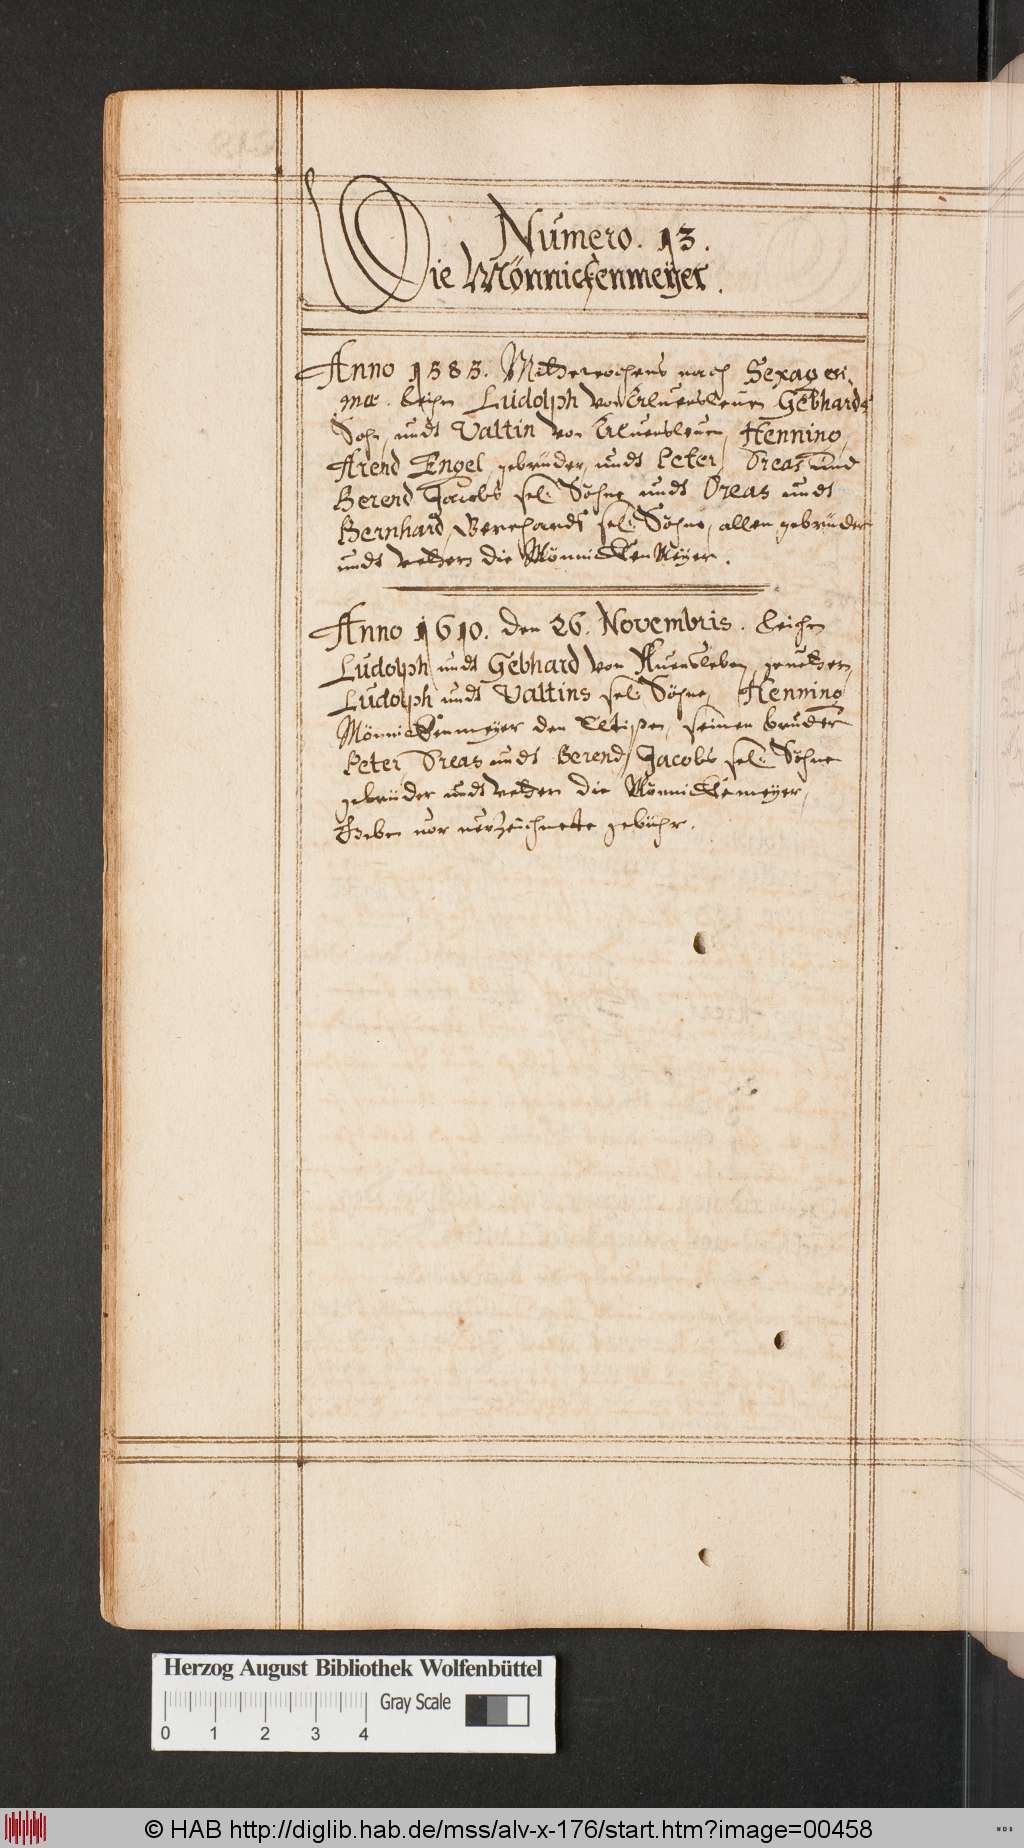 Numero. 13.
Die Mönnickenmeÿer.
Anno 1583. Mittwochens nach Sexagesi-
mæ. Leihn Ludolph von Aluensleuen Gebhards
Sohn, undt Valtin von Aluensleuen, Henning,
Arend Engel, gebrüder, undt Peter, Dreas und
Berend Jacobs sel: Söhne undt Dreas undt
Bernhard, Berchardt sel: Söhne, allen gebrüder
undt vettern die Mönnicken Meÿer.
Anno 1610. den 26. Novembris. Leihen
Ludolph undt Gebhard von Aluensleben, geuettern,
Ludolph undt Valtins sel: Söhne, Henning
Mönnickenmeÿer den Eltisten, seinen bruder
Peter Dreas undt Berend, Jacobs sel: Söhne
gebrüder undt vettern die Mönnickemeÿer,
Geben vor verzeichnette gebühr.
Herzog August Bibliothek Wolfenbüttel
Gray Scale
0 1 2 3 4
© HAB http://diglib.hab.de/mss/alv-x-176/start.htm?image=00458